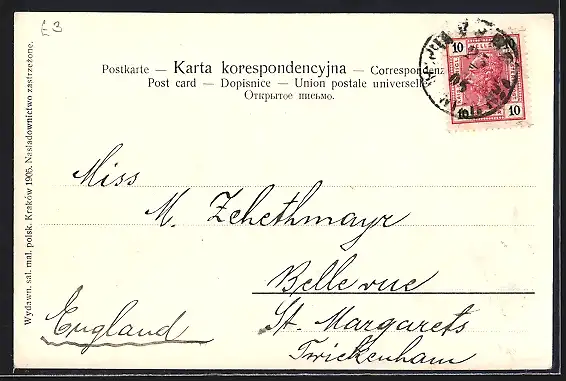 £3
Postkarte — Karta korespondencyjna — Correspondenz
Post card — Dopisnice — Union postale universelle
Открытое письмо.
10 10
10 10
Miss
M. Zehethmayr
Bellevue
England
St. Margarets
Twickenham
Wydawn. sal. mal. polsk. Kraków 1905. Naśladownictwo zastrzeżone.